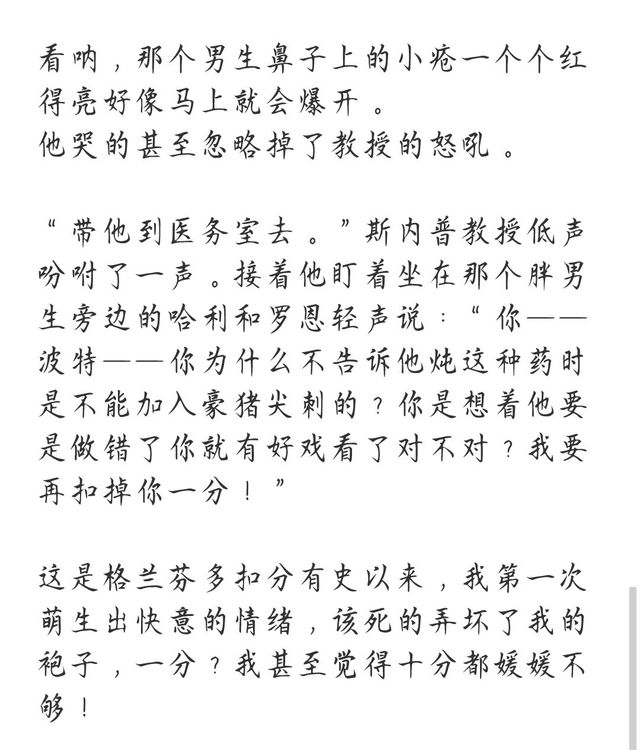 看呐，那个男生鼻子上的小疮一个个红
得亮好像马上就会爆开。
他哭的甚至忽略掉了教授的怒吼。
“带他到医务室去。”斯内普教授低声
吩咐了一声。接着他盯着坐在那个胖男
生旁边的哈利和罗恩轻声说：“你——
波特——你为什么不告诉他炖这种药时
是不能加入豪猪尖刺的？你是想着他要
是做错了你就有好戏看了对不对？我要
再扣掉你一分！”
这是格兰芬多扣分有史以来，我第一次
萌生出快意的情绪，该死的弄坏了我的
袍子，一分？我甚至觉得十分都媛媛不
够！